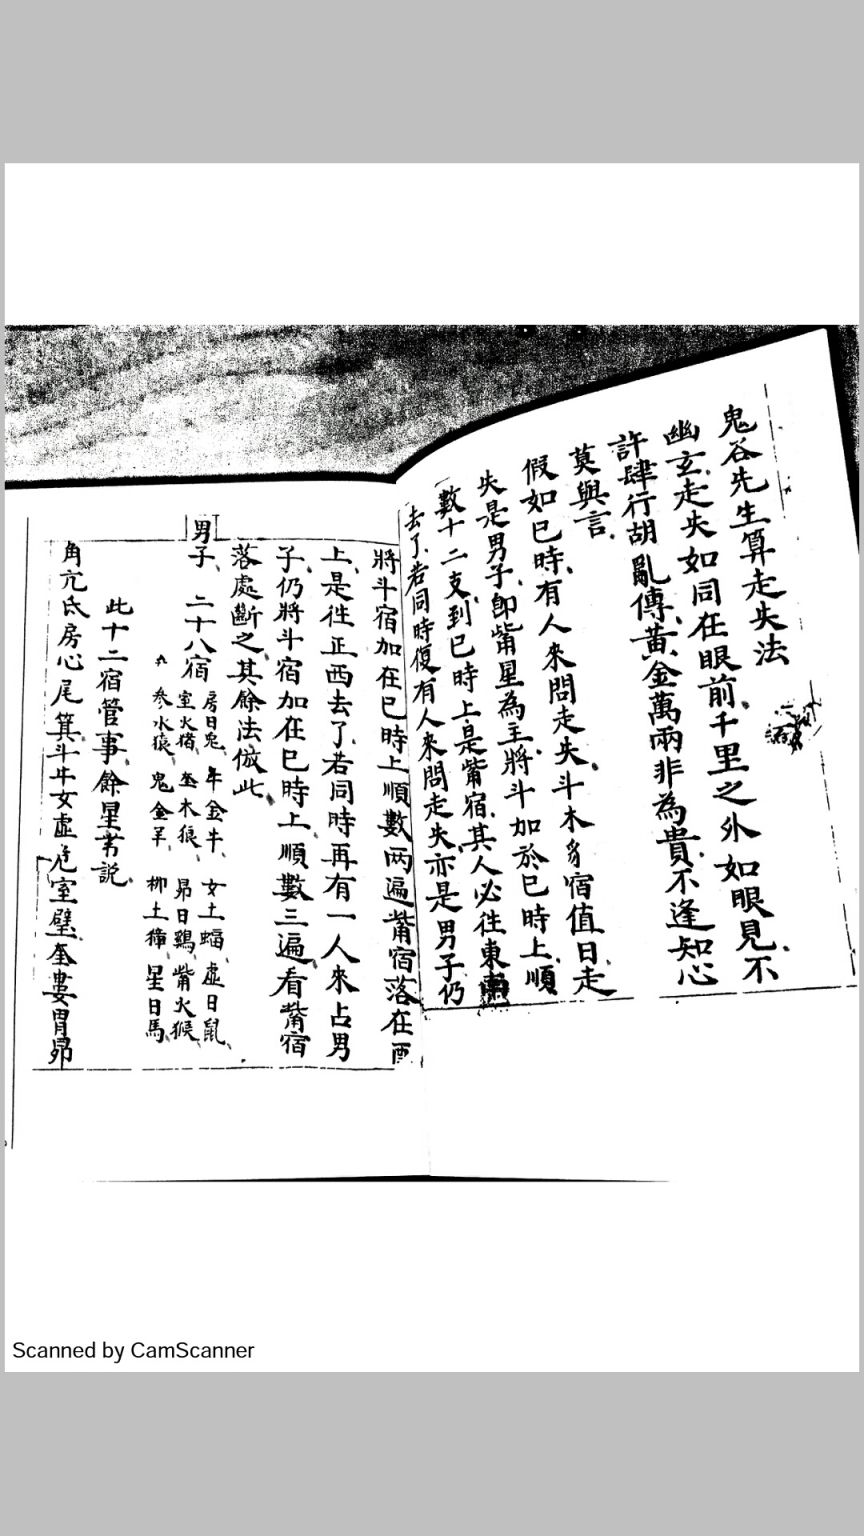 鬼谷先生算走失法
幽玄走失如同在眼前千里之外如眼見不
許肆行胡亂傳黃金萬兩非為貴不逢知心
莫與言
假如巳時有人來問走失斗木豸宿值日走
失是男子即觜星為主將斗加於巳時上順
數十二支到巳時上是觜宿其人必往東南
去了若同時復有人來問走失亦是男子仍
將斗宿加在巳時上順數两遍觜宿落在酉
上是徃正西去了若同時再有一人來占男
子仍將斗宿加在巳時上順數三遍看觜宿
落處斷之其餘法倣此
男子 二十八宿 房日兔 牛金牛 女土蝠 虛日鼠
室火猪 奎木狼 昴日鷄 觜火猴
参水猿 鬼金羊 柳土獐 星日馬
此十二宿管事餘星若說
角亢氐房心尾箕斗牛女虛危室壁奎婁胃昴
Scanned by CamScanner